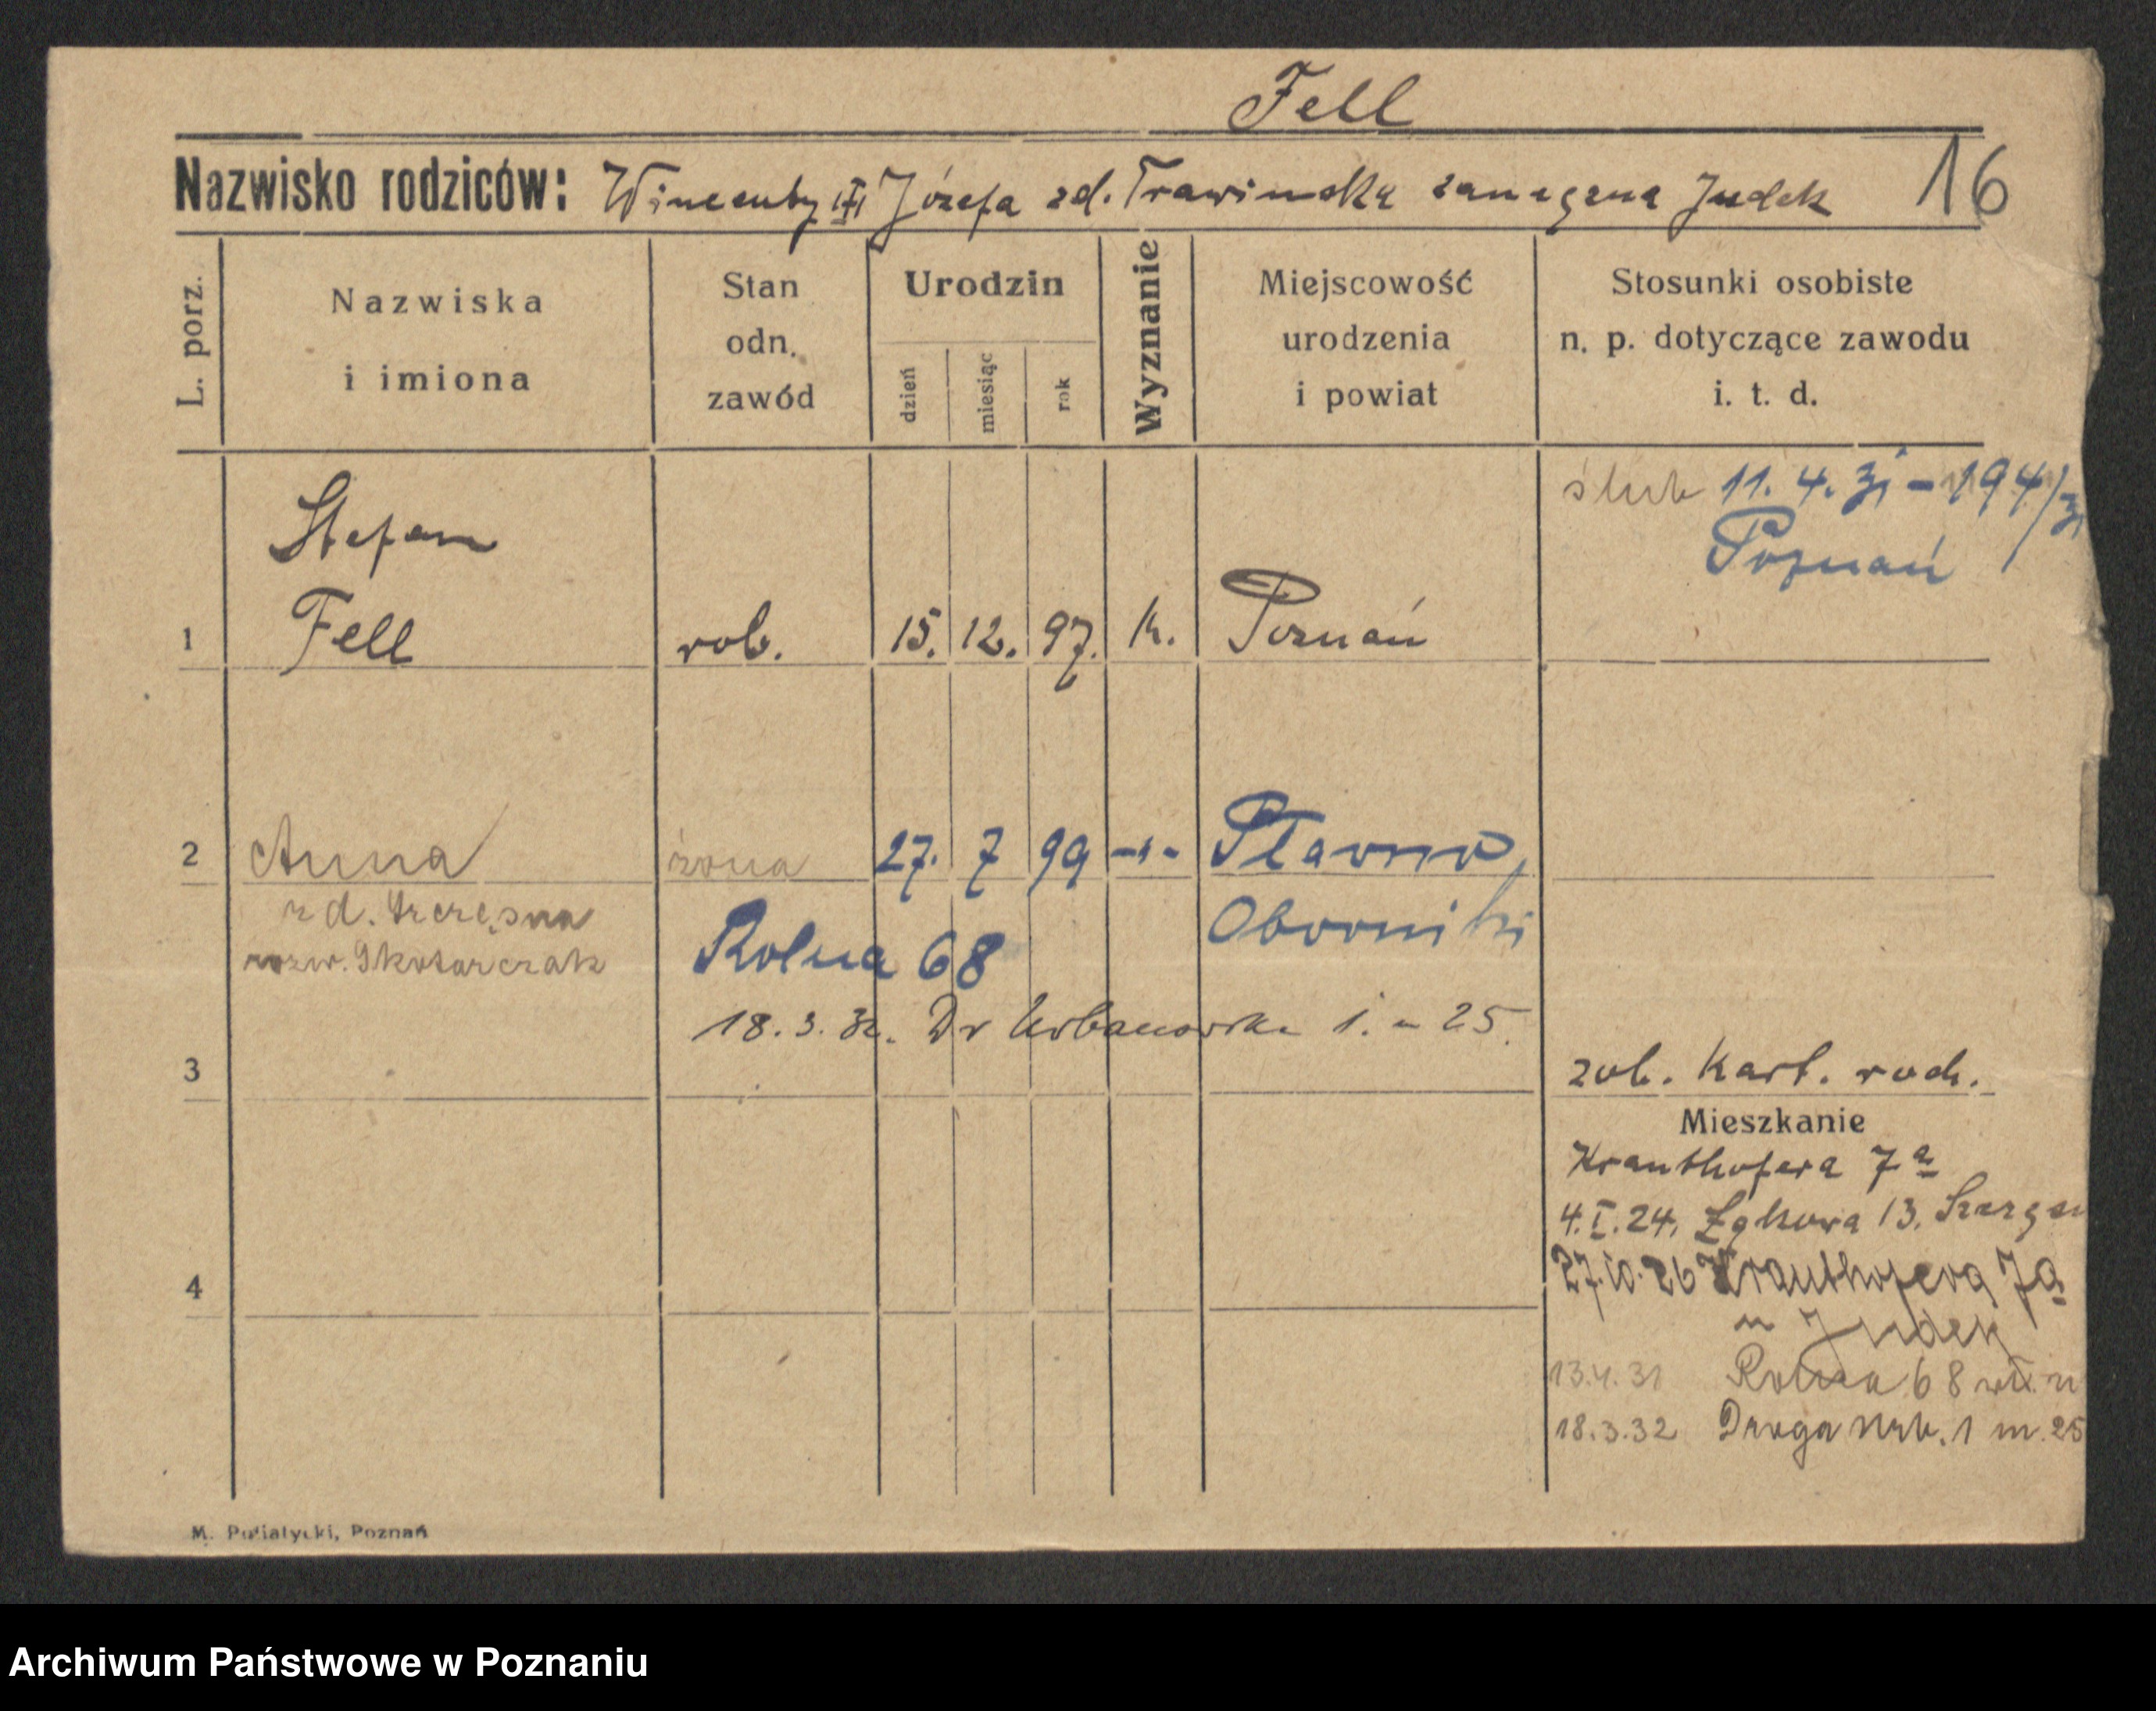 Fell
Nazwisko rodziców: Wincenty Józefa zd. Trawińska zamężna Judek 16
L. porz.
Nazwiska i imiona
Stan odn. zawód
Urodzin
dzień miesiąc rok
Wyznanie
Miejscowość urodzenia i powiat
Stosunki osobiste n. p. dotyczące zawodu i. t. d.
ślub 11. 4. 31 - 194/31
Poznań
Stefan
1 Fell rob. 15. 12. 97. k. Poznań
2 Anna żona 27. 7 99 -"-
zd.
rozw. Skotarczak
Oborniki
Rolna 68
18. 3. 32. Dr Urbanowska 1. m 25.
3
zob. Kart. rodz.
Mieszkanie
Krauthofera 7a
4. I. 24. Łąkowa 13.
27.10.26 Krauthofera 7a
u Judek
13.4.31 Rolna 68
18.3.32 Droga Urb. 1 m. 25
4
M. Putiatycki, Poznań
Archiwum Państwowe w Poznaniu